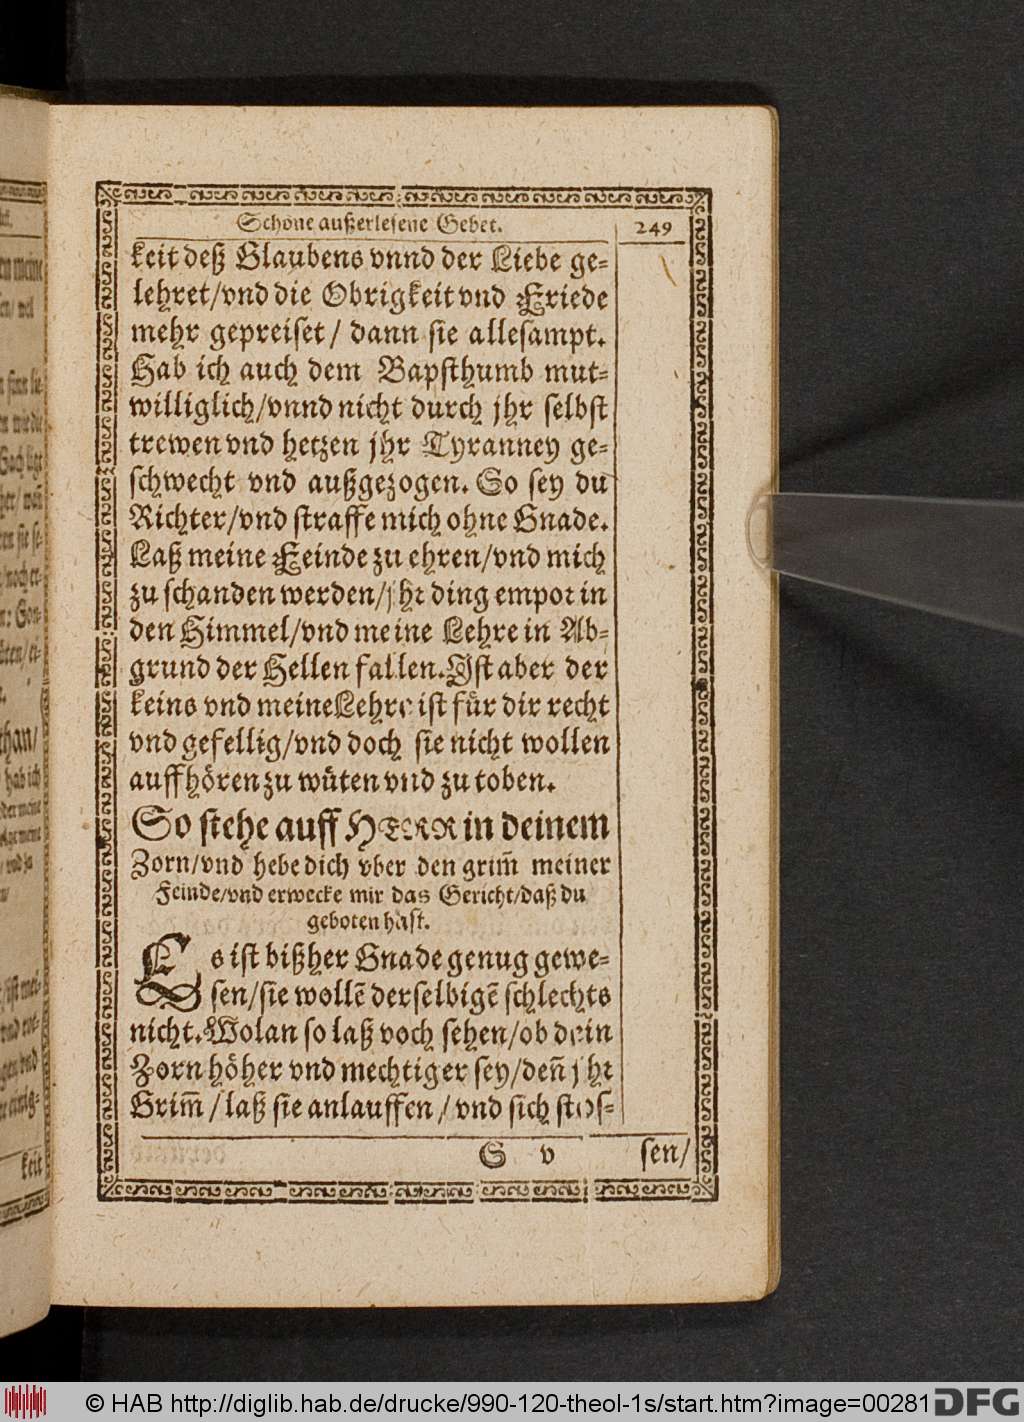 Schöne außerlesene Gebet.
249
keit deß Glaubens vnnd der Liebe ge-
lehret/vnd die Obrigkeit vnd Friede
mehr gepreiset/ dann sie allesampt.
Hab ich auch dem Bapsthumb mut-
williglich/vnnd nicht durch jhr selbst
trewen vnd hetzen jhr Tyranney ge-
schwecht vnd außgezogen. So sey du
Richter/vnd straffe mich ohne Gnade.
Laß meine Feinde zu ehren/vnd mich
zu schanden werden/jhr ding empor in
den Himmel/vnd meine Lehre in Ab-
grund der Hellen fallen. Ist aber der
keins vnd meine Lehre ist für dir recht
vnd gefellig/vnd doch sie nicht wollen
auffhören zu wüten vnd zu toben.
So stehe auff HERR in deinem
Zorn/vnd hebe dich vber den grim̃ meiner
Feinde/vnd erwecke mir das Gericht/daß du
geboten hast.
Es ist bißher Gnade genug gewe-
sen/sie wollẽ derselbigẽ schlechts
nicht. Wolan so laß doch sehen/ob dein
Zorn höher vnd mechtiger sey/deñ jhr
Grim̃/laß sie anlauffen/vnd sich stos-
S v
sen/
keit
© HAB http://diglib.hab.de/drucke/990-120-theol-1s/start.htm?image=00281
DFG